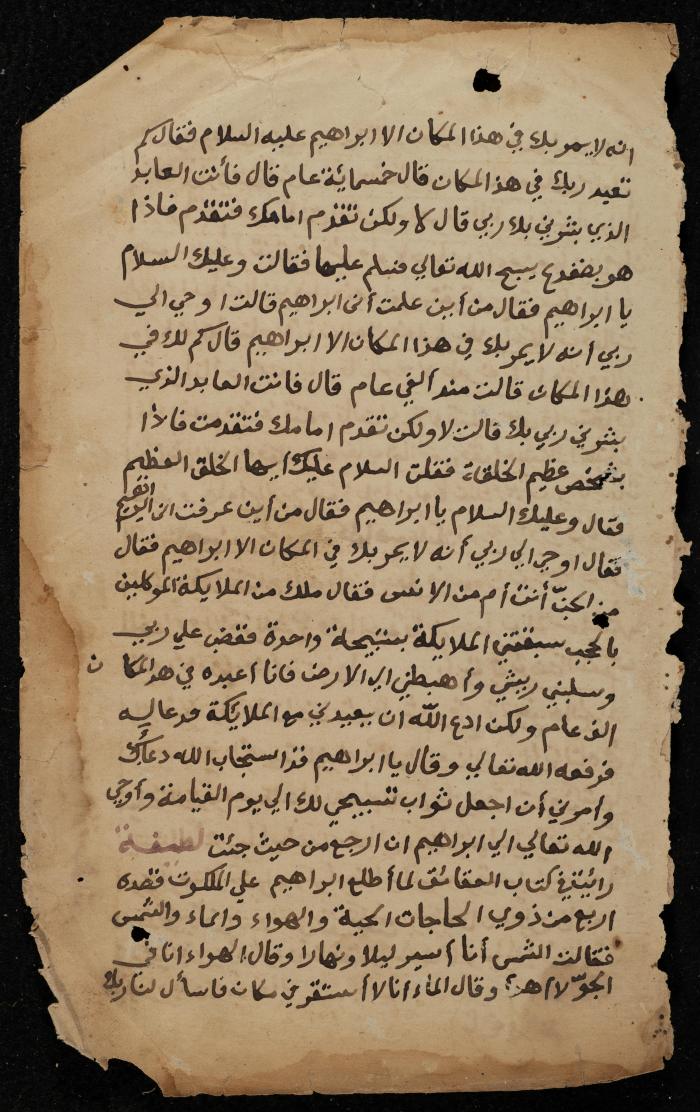 انه لا يمر بك في هذا المكان الا ابراهيم عليه السلام فقال كم
تعبد ربك في هذا المكان قال خمسمائة عام قال فأنت العابد
الذي بشرني بك ربي قال لا ولكن تقدم امامك فتقدم فاذا
هو بضفدع يسبح الله تعالي فسلم عليها فقالت وعليك السلام
يا ابراهيم فقال من أين علمت أني ابراهيم قالت اوحي الي
ربي أنه لا يمر بك في هذا المكان الا ابراهيم قال كم لك في
هذا المكان قالت منذ ألفي عام قال فانت العابد الذي
بشرني ربي بك قالت لا ولكن تقدم امامك فتقدمت فاذا
بشخص عظيم الخلقة فقلت السلام عليك أيها الخلق العظيم
فقال وعليك السلام يا ابراهيم فقال من أين عرفت اني ابراهيم
فقال اوحي الي ربي أنه لا يمر بك في المكان الا ابراهيم فقال
من الجن أنت أم من الانس فقال ملك من الملايكة الموكلين
بالحجب سبقتني الملايكة بتسبيحة واحدة فغضب علي ربي
وسلبني ريشي وأهبطني الي الارض فانا أعبده في هذ المكان
الف عام ولكن ادع الله ان يعيدني مع الملائكة فدعا ليه
فرفعه الله تعالي وقال يا ابراهيم قد استجاب الله دعاءك
وأمرني أن اجعل ثواب تسبيحي لك الي يوم القيامة وأوحي
الله تعالي الي ابراهيم ان ارجع من حيث جئت لطيفة
رائيت في كتاب العقائق لما أطلع ابراهيم علي الملكوت قصده
اربع من ذوي الحاجات الحية والهواء والماء والشمس
فقالت الشمس أنا أسير ليلا ونهارا وقال الهواء انا في
الجو لا أهدأ وقال الماء أنا لا أستقر في مكان فاسأل لنا ربك